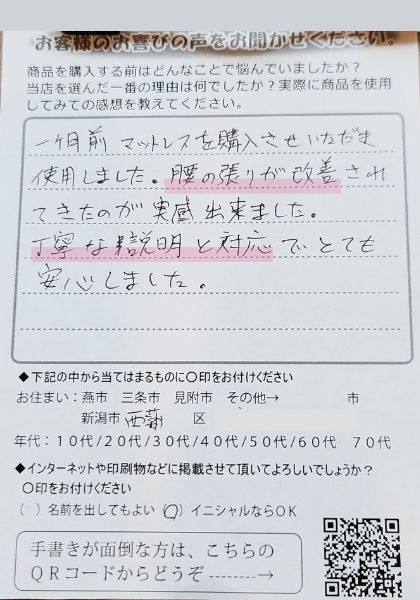 お客様のお喜びの声をお聞かせください。
商品を購入する前はどんなことで悩んでいましたか？
当店を選んだ一番の理由は何でしたか？実際に商品を使用
してみての感想を教えてください。
一ヶ月前 マットレスを購入させいただき
使用しました。腰の張りが改善され
てきたのが実感出来ました。
丁寧な説明と対応でとても
安心しました。
◆下記の中から当てはまるものに〇印をお付けください
お住まい：燕市 三条市 見附市 その他→ 市
新潟市 西蒲 区
年代：１０代/２０代/３０代/４０代/５０代/６０代 ７０代
◆インターネットや印刷物などに掲載させて頂いてよろしいでしょうか？
〇印をお付けください
（ ）名前を出してもよい（〇）イニシャルならＯＫ
手書きが面倒な方は、こちらの
ＱＲコードからどうぞ---------→